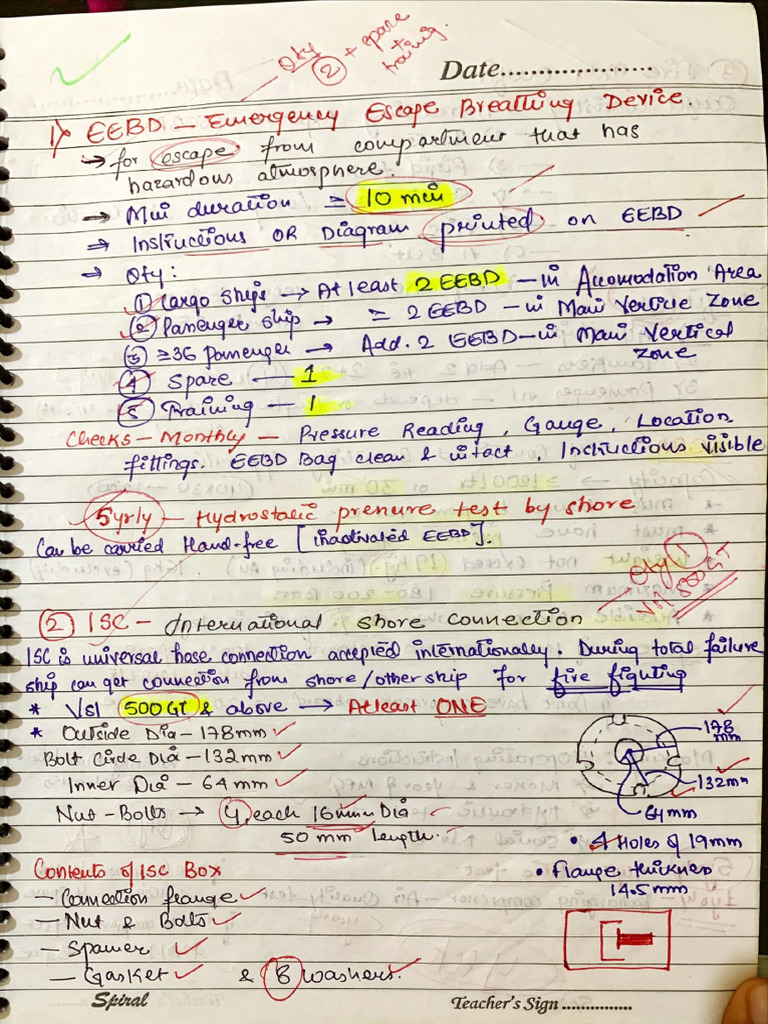 Qty
② + spare
+ training.
Date...................
1) EEBD – Emergency Escape Breathing Device.
→ for escape from compartment that has
hazardous atmosphere.
→ Min duration = 10 min
⇒ Instructions OR Diagram printed on EEBD
→ Qty:
① Cargo Ships → At least 2 EEBD – in Accomodation Area
② Passenger ship → = 2 EEBD – in Main Vertice Zone
③ ≥36 passenger → Add. 2 EEBD – in Main Vertical
Zone
④ Spare — 1
⑤ Training – 1
Checks – Monthly – Pressure Reading, Gauge, Location
fittings. EEBD Bag clean & intact, Instructions visible
5yrly – Hydrostatic pressure test by shore
Can be carried Hand-free [inactivated EEBD].
Qty 1
Vsl 500GT
② ISC – International Shore Connection
ISC is universal hose connection accepted internationally. During total failure
ship can get connection from shore/other ship for fire fighting
* Vsl 500 GT & above → Atleast ONE
* Outside Dia – 178mm
Bolt Circle Dia – 132mm
Inner Dia – 64mm
Nut – Bolts → 4, each 16mm Dia
50 mm length.
178 mm
132mm
64mm
• 4 Holes of 19mm
• flange thicknes
14.5mm
Contents of ISC Box
– Connection flange
– Nut & Bolts
– Spanner
– Gasket & 8 washers.
Spiral
Teacher's Sign ...............